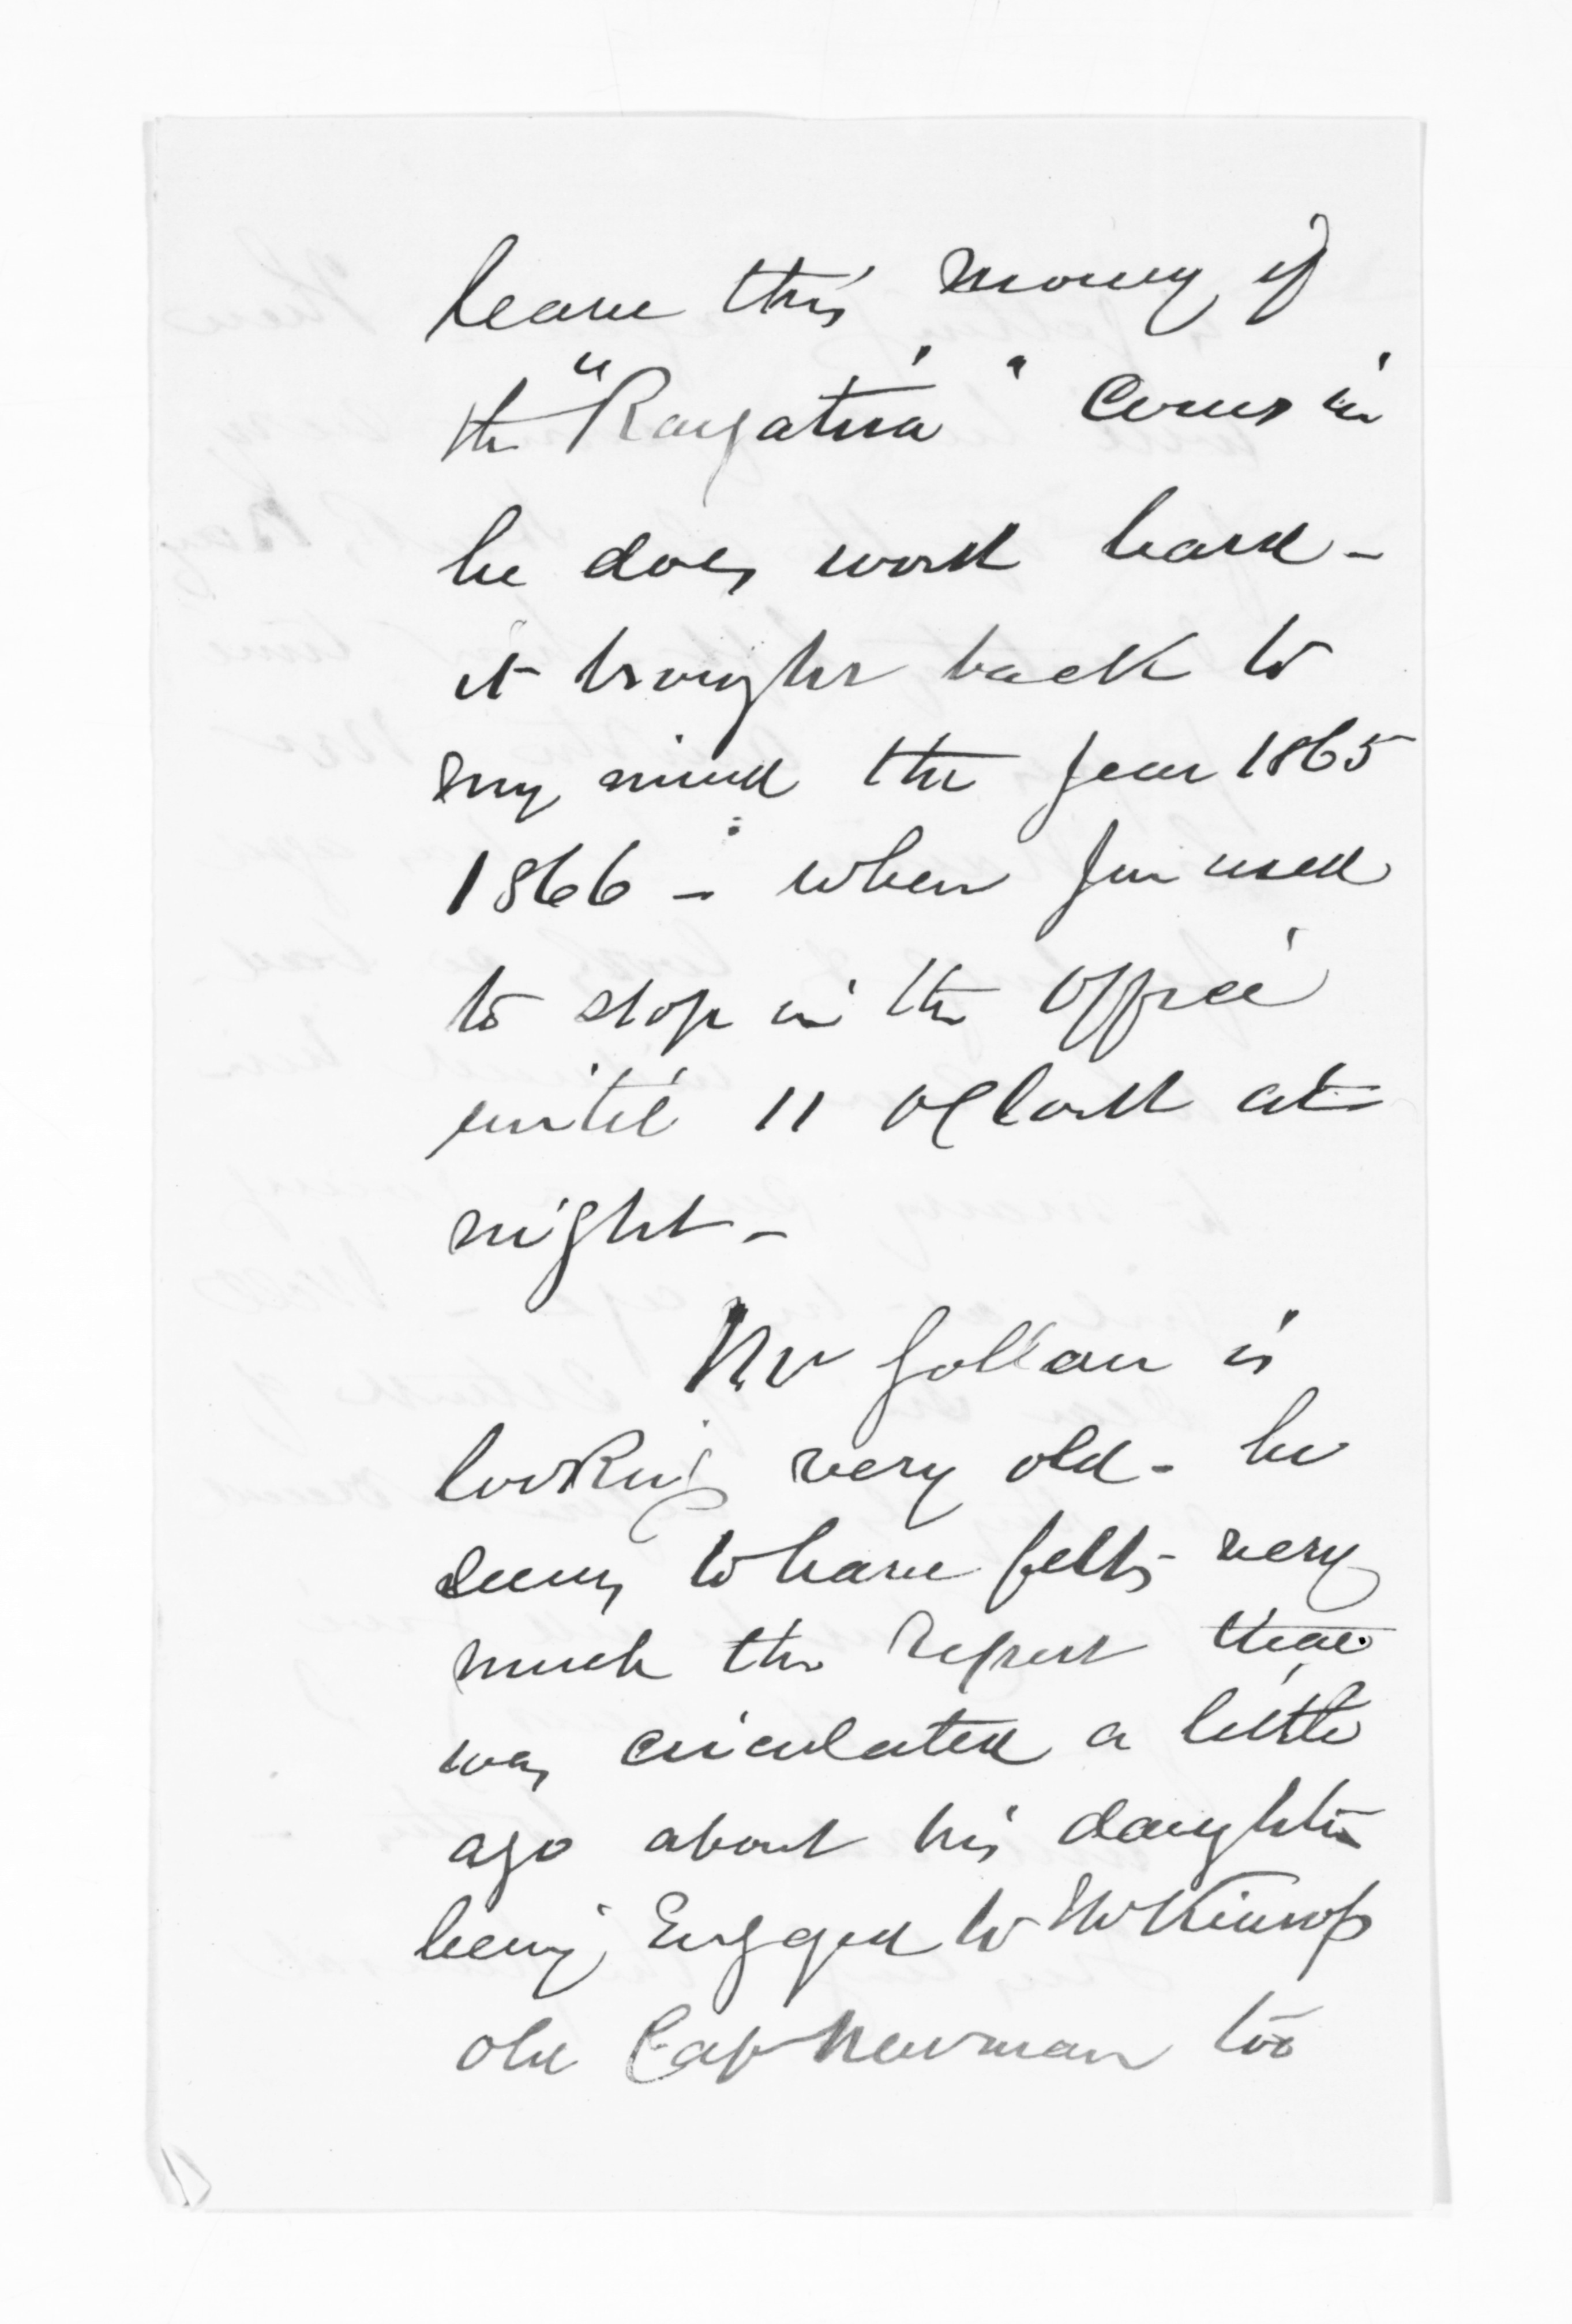 leave this money if
the "Rangatira" comes in
he does work hard -
it brought back to
my mind the year 1865
1866 - when you used
to stop in the Office
until 11 oClock at
night -
Mr Gollan is
looking very old - he
seems to have felt very
much the report that
was circulated a little
ago about his daughter
being Engaged to Mr Kinross
old Cap Newman too